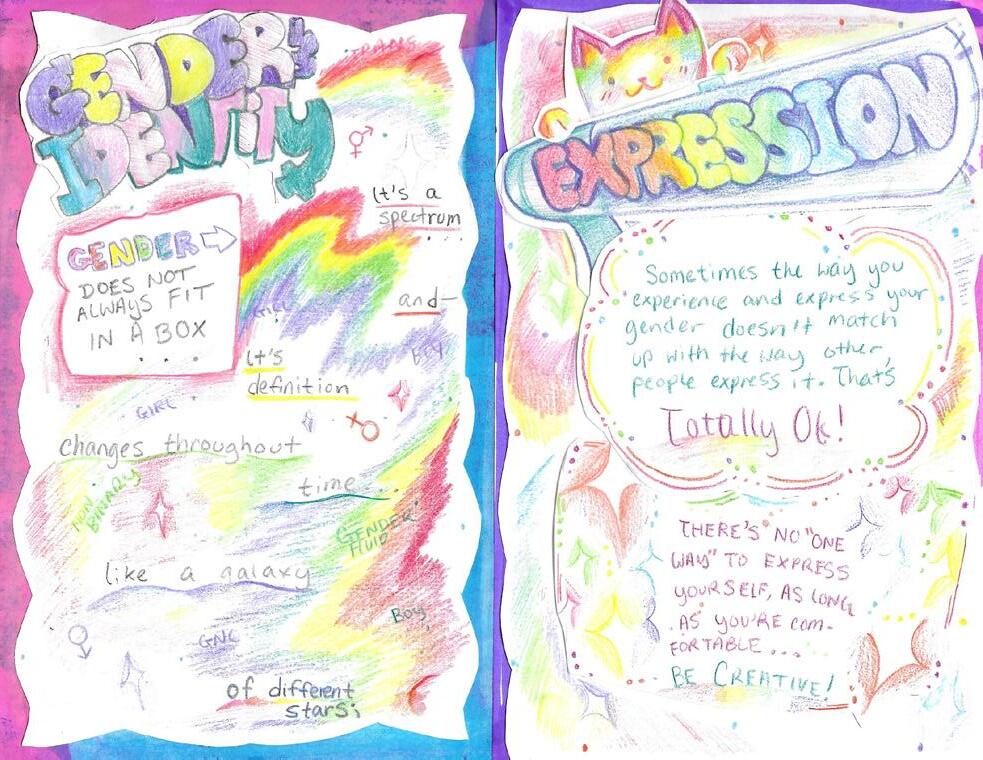 GENDER &
IDENTITY
TRANS
It's a
spectrum
....
GENDER
DOES NOT
ALWAYS FIT
IN A BOX
...
GIRL
and-
BOY
It's
definition
GIRL
changes throughout
time...
NON
BINARY
GENDER
FLUID
like a galaxy
BOY
GNC
of different
stars;
EXPRESSION
Sometimes the way you
experience and express your
gender doesn't match
up with the way other
people express it. That's
Totally Ok!
THERE'S NO "ONE
WAY" TO EXPRESS
YOURSELF, AS LONG
AS YOU'RE COM-
FORTABLE ...
BE CREATIVE!